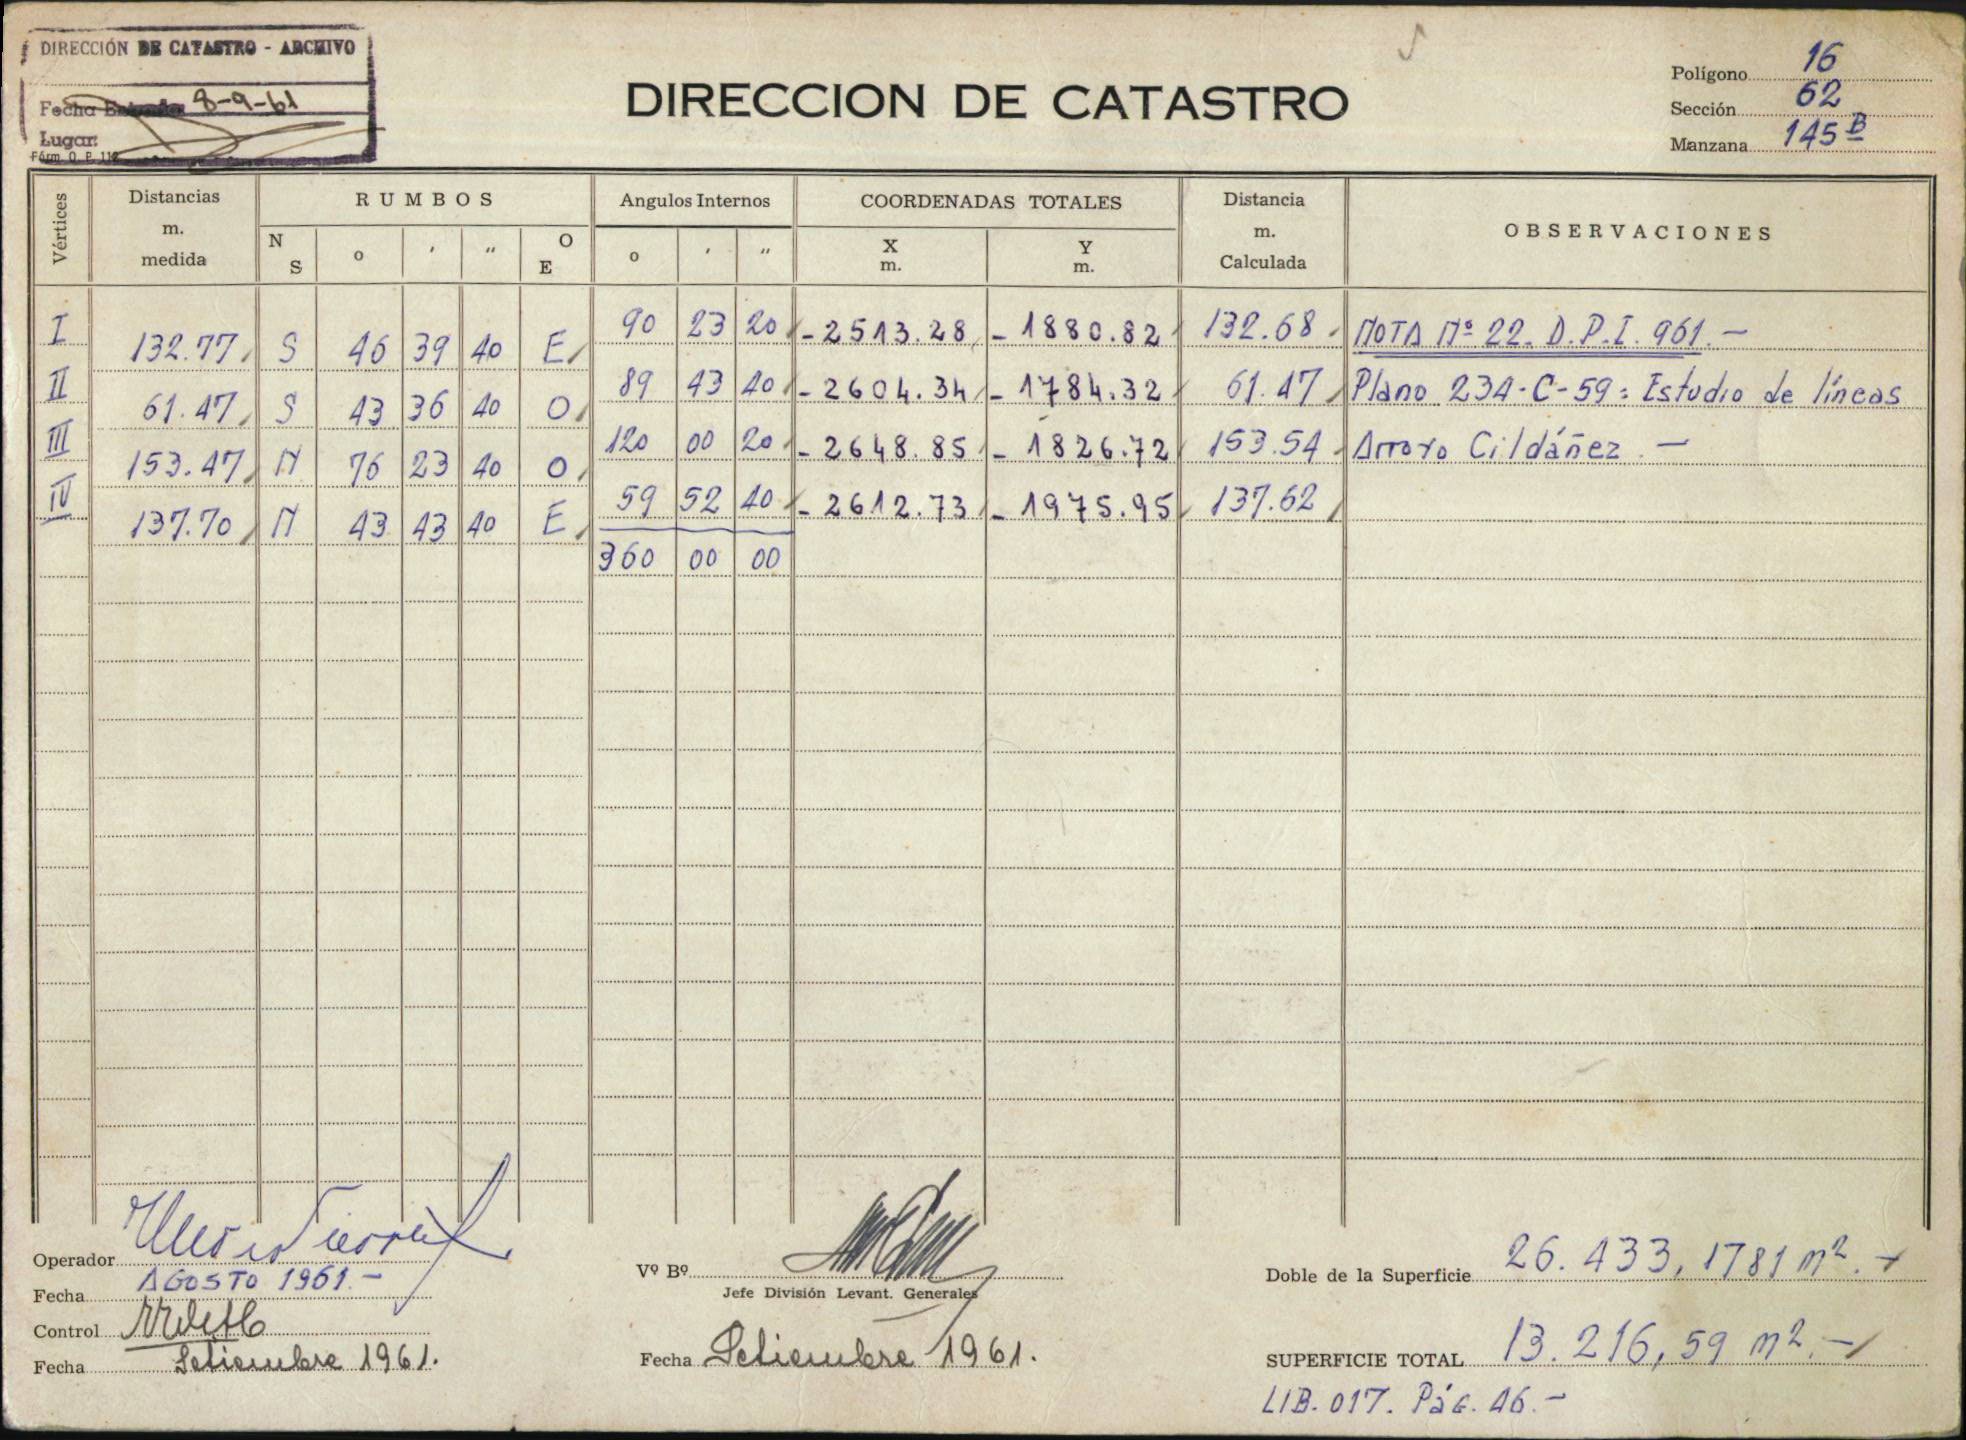 DIRECCIÓN DE CATASTRO - ARCHIVO
Fecha Entrada 8-9-61
Lugar:
Fórm O. P. 112
DIRECCION DE CATASTRO
Polígono 16
Sección 62
Manzana 145 B
Vértices Distancias m. medida RUMBOS Angulos Internos COORDENADAS TOTALES Distancia m. Calculada OBSERVACIONES
N S o ′ ″ O E o ′ ″ X m. Y m.
I 132.77 S 46 39 40 E 90 23 20 -2513.28 -1880.82 132.68 NOTA Nº 22. D.P.I. 961.-
II 61.47 S 43 36 40 O 89 43 40 -2604.34 -1784.32 61.47 Plano 234-C-59: Estudio de líneas
III 153.47 N 76 23 40 O 120 00 20 -2648.85 -1826.72 153.54 Arroyo Cildáñez.-
IV 137.70 N 43 43 40 E 59 52 40 -2612.73 -1975.95 137.62
360 00 00
Operador
Fecha AGOSTO 1961.-
Control
Fecha Setiembre 1961.
Vº Bº
Jefe División Levant. Generales
Fecha Setiembre 1961.
Doble de la Superficie 26.433,1781 m².-
SUPERFICIE TOTAL 13.216,59 m².-
LIB. 017. Pág. 46.-